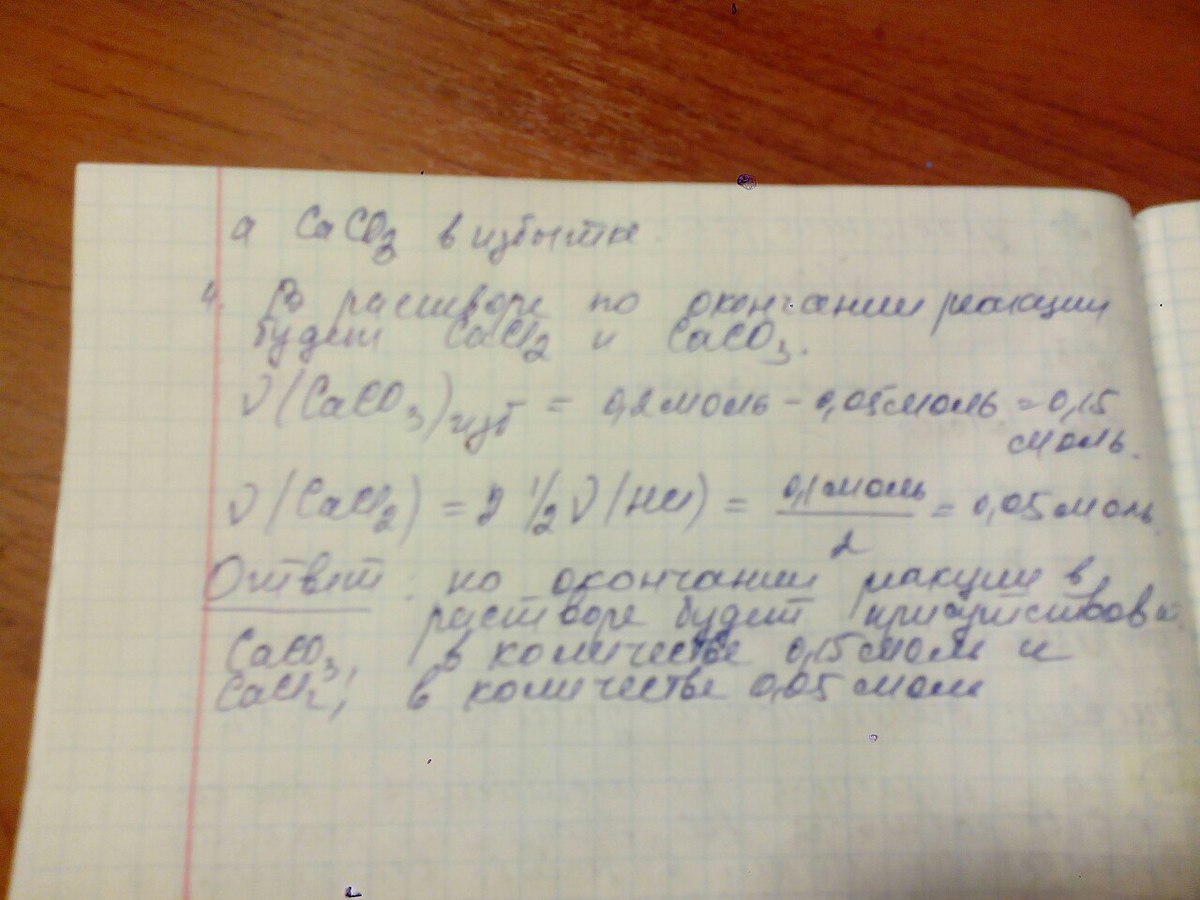 а CaCO3 в избытке.
4. В растворе по окончании реакции
будет CaCl2 и CaCO3.
ν(CaCO3)изб = 0,2 моль - 0,05 моль = 0,15
моль.
ν(CaCl2) = 1/2 ν(HCl) = 0,1 моль / 2 = 0,05 моль
Ответ: по окончании реакции в
растворе будет присутствовать
CaCO3, в количестве 0,15 моль и
CaCl2, в количестве 0,05 моль